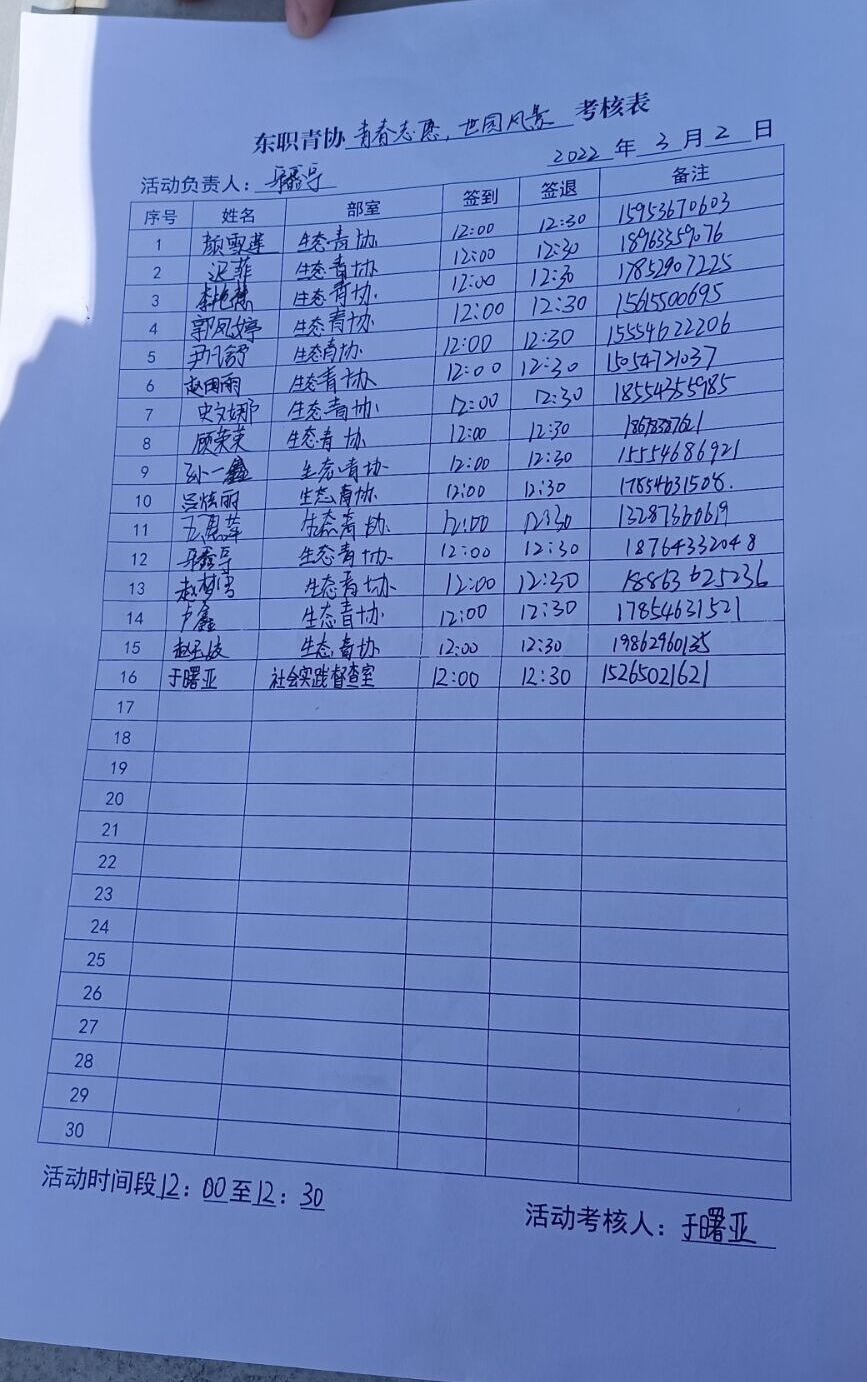 东职青协 青春志愿，世园风景 考核表
2022 年 3 月 2 日
活动负责人：
序号 姓名 部室 签到 签退 备注
1 颜雪莲 生态青协 12:00 12:30 15953670603
2 迟菲 生态青协 12:00 12:30 18963359076
3 生态青协 12:00 12:30 17852907225
4 郭凤婷 生态青协 12:00 12:30 15615500695
5 生态青协 12:00 12:30 15554622206
6 赵国雨 生态青协 12:00 12:30 15054721037
7 史文娜 生态青协 12:00 12:30 18554355985
8 顾荣荣 生态青协 12:00 12:30 18678387621
9 孙一鑫 生态青协 12:00 12:30 15554686921
10 生态青协 12:00 12:30 17854631508.
11 生态青协 12:00 12:30 13287360619
12 生态青协 12:00 12:30 18764332048
13 赵梦雪 生态青协 12:00 12:30 18863625236
14 卢鑫 生态青协 12:00 12:30 17854631521
15 生态青协 12:00 12:30 19862960135
16 于曙亚 社会实践督查室 12:00 12:30 15265021621
17
18
19
20
21
22
23
24
25
26
27
28
29
30
活动时间段12：00至12：30
活动考核人：于曙亚